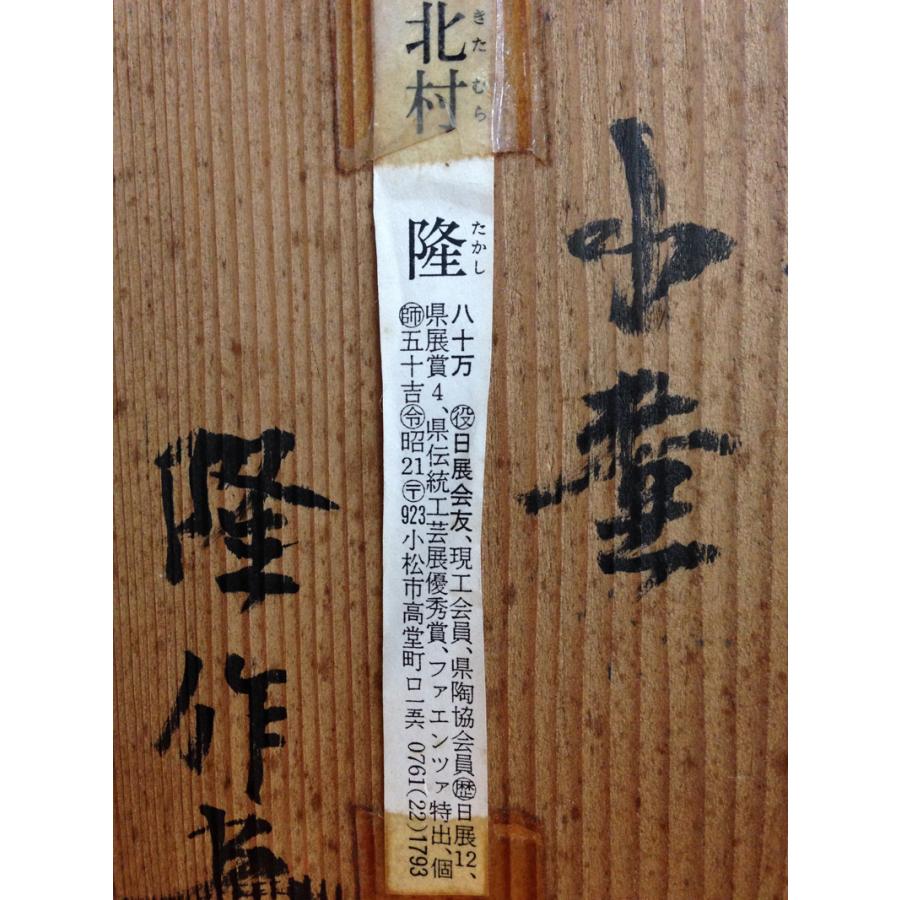 小壷
きたむら
北村
たかし
隆
八十万 ㊝日展会友、現工会員、県陶協会員㊭日展12、
県展賞4、県伝統工芸展優秀賞、ファエンツァ特出、個
師五十吉令昭21〒923小松市高堂町ロ一五六 0761(22)1793
隆作